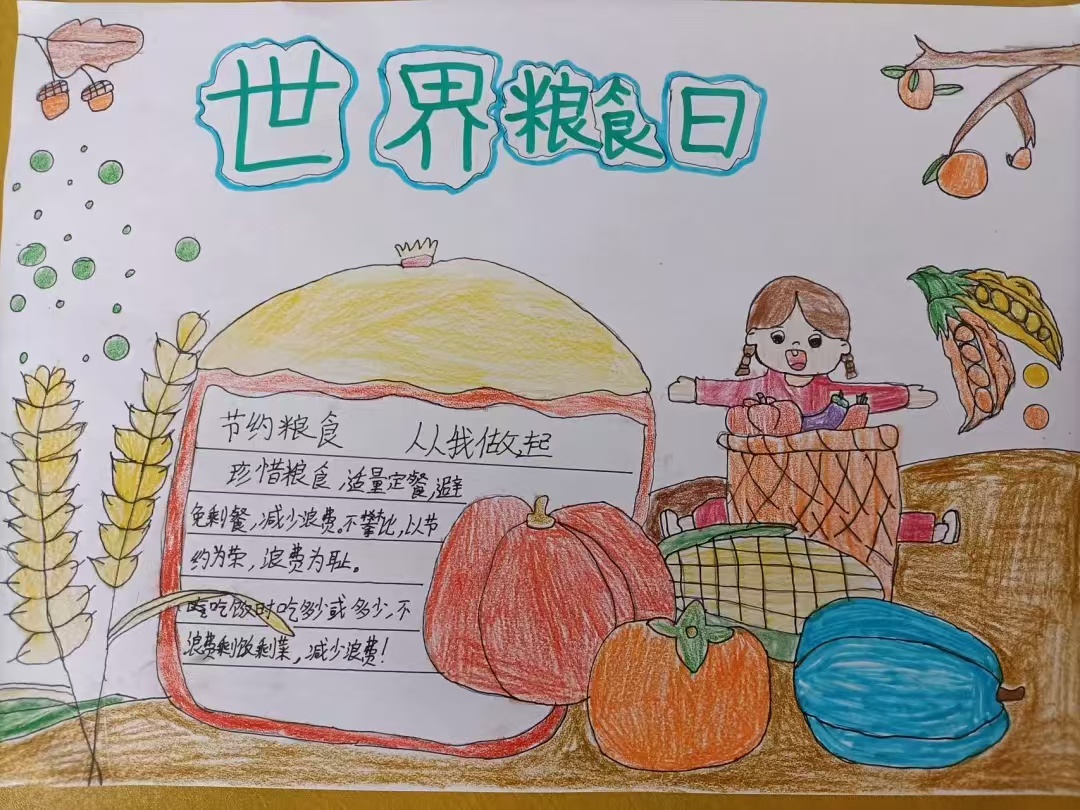 世界粮食日
节约粮食 从从我做,起
珍惜粮食,适量定餐,避
免剩餐,减少浪费。不攀比,以节
约为荣,浪费为耻。
吃饭时吃多少或多少,不
浪费剩饭剩菜,减少浪费!